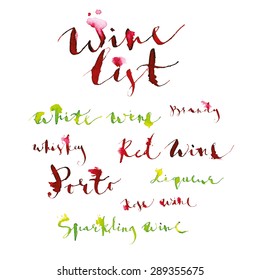 wine
list
White wine
Brandy
Whiskey
Red Wine
Porto
Liqueur
Rose wine
Sparkling wine
shutterstock.com · 289355675